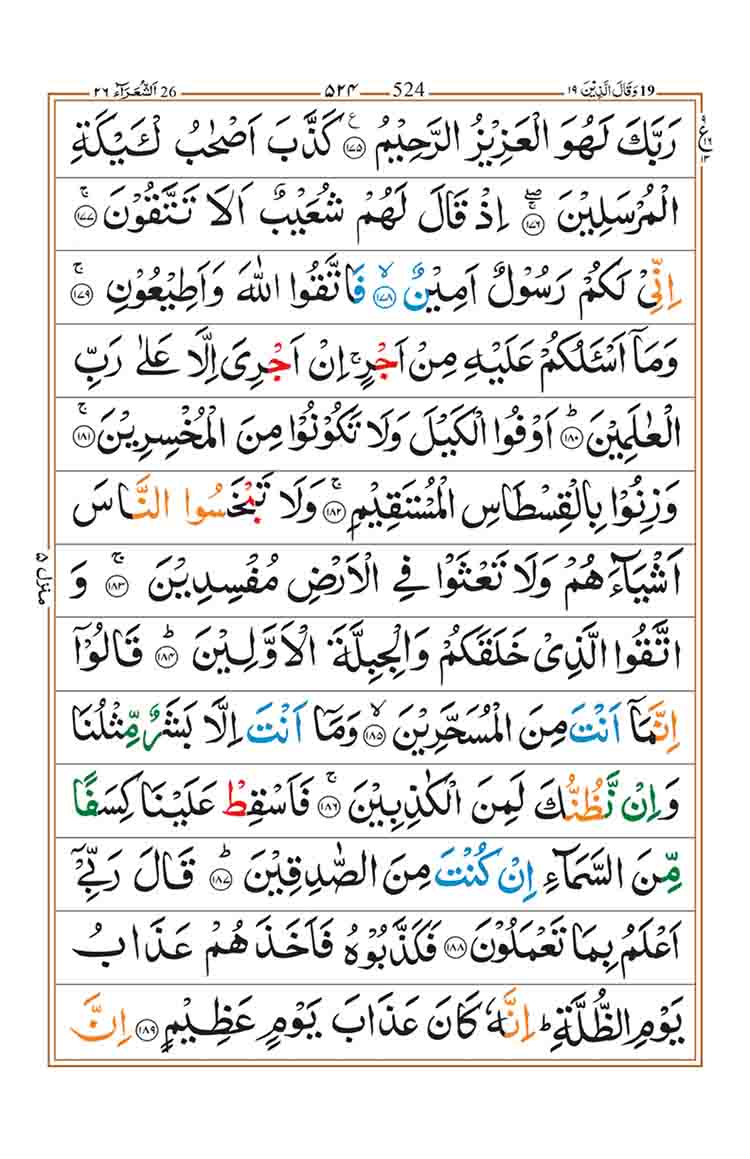 19 وَقَالَ الَّذِيْنَ ١٩ 524 ۵۲۴ 26 اَلشُّعَرَآء ٢٦
رَبَّكَ لَهُوَ الْعَزِيْزُ الرَّحِيْمُ ﴿١٧٥﴾ ع كَذَّبَ اَصْحٰبُ لْـَٔيْكَةِ
٩ ع ١٦ ١٣
الْمُرْسَلِيْنَ ﴿١٧٦﴾ ۖۚ اِذْ قَالَ لَهُمْ شُعَيْبٌ اَلَا تَتَّقُوْنَ ﴿١٧٧﴾ ۚ
اِنِّىْ لَكُمْ رَسُوْلٌ اَمِيْنٌ ﴿١٧٨﴾ ۙ فَاتَّقُوا اللّٰهَ وَاَطِيْعُوْنِ ﴿١٧٩﴾ ۚ
وَمَاۤ اَسْـَٔلُكُمْ عَلَيْهِ مِنْ اَجْرٍۚ اِنْ اَجْرِىَ اِلَّا عَلٰى رَبِّ
الْعٰلَمِيْنَ ﴿١٨٠﴾ ؕ اَوْفُوا الْكَيْلَ وَلَا تَكُوْنُوْا مِنَ الْمُخْسِرِيْنَ ﴿١٨١﴾ ۚ
وَزِنُوْا بِالْقِسْطَاسِ الْمُسْتَقِيْمِ ﴿١٨٢﴾ ۚ وَلَا تَبْخَسُوا النَّاسَ
اَشْيَآءَهُمْ وَلَا تَعْثَوْا فِى الْاَرْضِ مُفْسِدِيْنَ ﴿١٨٣﴾ ۚ وَ
منزل ۵
اتَّقُوا الَّذِىْ خَلَقَكُمْ وَالْجِبِلَّةَ الْاَوَّلِيْنَ ﴿١٨٤﴾ ؕ قَالُوْۤا
اِنَّمَاۤ اَنْتَ مِنَ الْمُسَحَّرِيْنَ ﴿١٨٥﴾ ۙ وَمَاۤ اَنْتَ اِلَّا بَشَرٌ مِّثْلُنَا
وَاِنْ نَّظُنُّكَ لَمِنَ الْكٰذِبِيْنَ ﴿١٨٦﴾ ۚ فَاَسْقِطْ عَلَيْنَا كِسَفًا
مِّنَ السَّمَآءِ اِنْ كُنْتَ مِنَ الصّٰدِقِيْنَ ﴿١٨٧﴾ ؕ قَالَ رَبِّىْۤ
اَعْلَمُ بِمَا تَعْمَلُوْنَ ﴿١٨٨﴾ فَكَذَّبُوْهُ فَاَخَذَهُمْ عَذَابُ
يَوْمِ الظُّلَّةِؕ اِنَّهٗ كَانَ عَذَابَ يَوْمٍ عَظِيْمٍ ﴿١٨٩﴾ اِنَّ